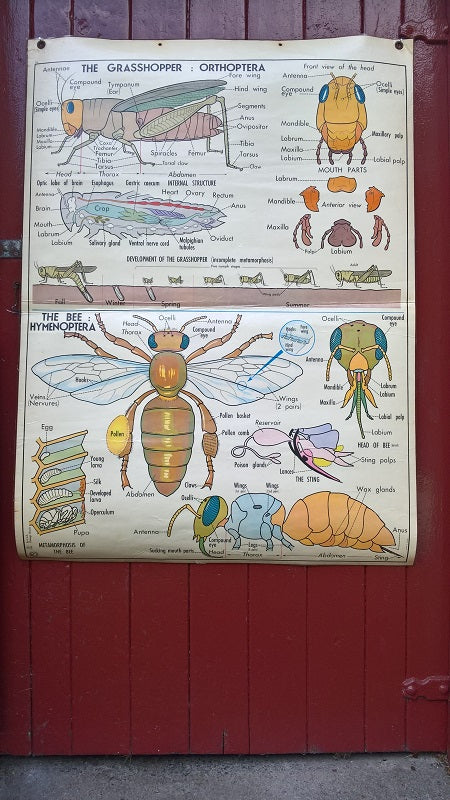 THE GRASSHOPPER : ORTHOPTERA
Antennae
Compound eye
Tympanum (Ear)
Fore wing
Hind wing
Ocelli (Simple eyes)
Segments
Anus
Ovipositor
Mandible
Labrum
Maxilla
Labium
Coxa
Trochanter
Femur
Tibia
Tarsus
Spiracles
Femur
Tibia
Tarsus
Claw
Head
Thorax
Abdomen
Front view of the head
Antenna
Compound eye
Ocelli (Simple eyes)
Mandible
Labrum
Maxilla
Labium
Maxillary palp
Labial palp
MOUTH PARTS
Labrum
Mandible
Anterior view
Maxilla
Palp
Labium
Optic lobe of brain
Esophagus
Gastric caecum
INTERNAL STRUCTURE
Antenna
Heart
Ovary
Rectum
Brain
Crop
Anus
Mouth
Labrum
Labium
Salivary gland
Ventral nerve cord
Malpighian tubules
Oviduct
DEVELOPMENT OF THE GRASSHOPPER (incomplete metamorphosis)
Adult
Fall
Winter
Spring
Summer
THE BEE : HYMENOPTERA
Head
Thorax
Ocelli
Antenna
Compound eye
Hooks
Hooks
Fore wing
Hind wing
Veins (Nervures)
Wings (2 pairs)
Pollen
Pollen basket
Pollen comb
Abdomen
Claws
Ocelli
Compound eye
Antenna
Mandible
Maxilla
Labrum
Labium
Labial palp
Labium
HEAD OF BEE
Reservoir
Poison glands
Lancets
Sting palps
THE STING
Egg
Young larva
Silk
Developed larva
Operculum
Pupa
METAMORPHOSIS OF THE BEE
Ocelli
Antenna
Compound eye
Sucking mouth parts
Head
Wings
Wings
Legs
Thorax
Wax glands
Abdomen
Anus
Sting